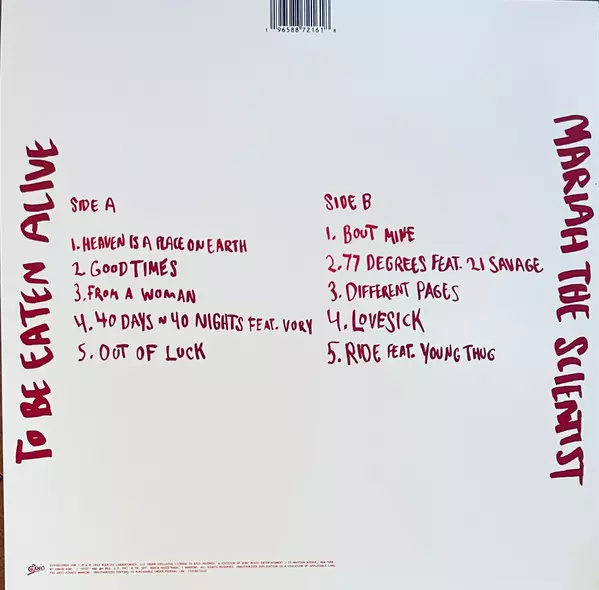 1 96588 72161 8
TO BE EATEN ALIVE
SIDE A
1. HEAVEN IS A PLACE ON EARTH
2 GOOD TIMES
3. FROM A WOMAN
4. 40 DAYS N 40 NIGHTS FEAT. VORY
5. OUT OF LUCK
SIDE B
1. BOUT MINE
2. 77 DEGREES FEAT. 21 SAVAGE
3. DIFFERENT PAGES
4. LOVESICK
5. RIDE FEAT. YOUNG THUG
MARIAH THE SCIENTIST
Epic